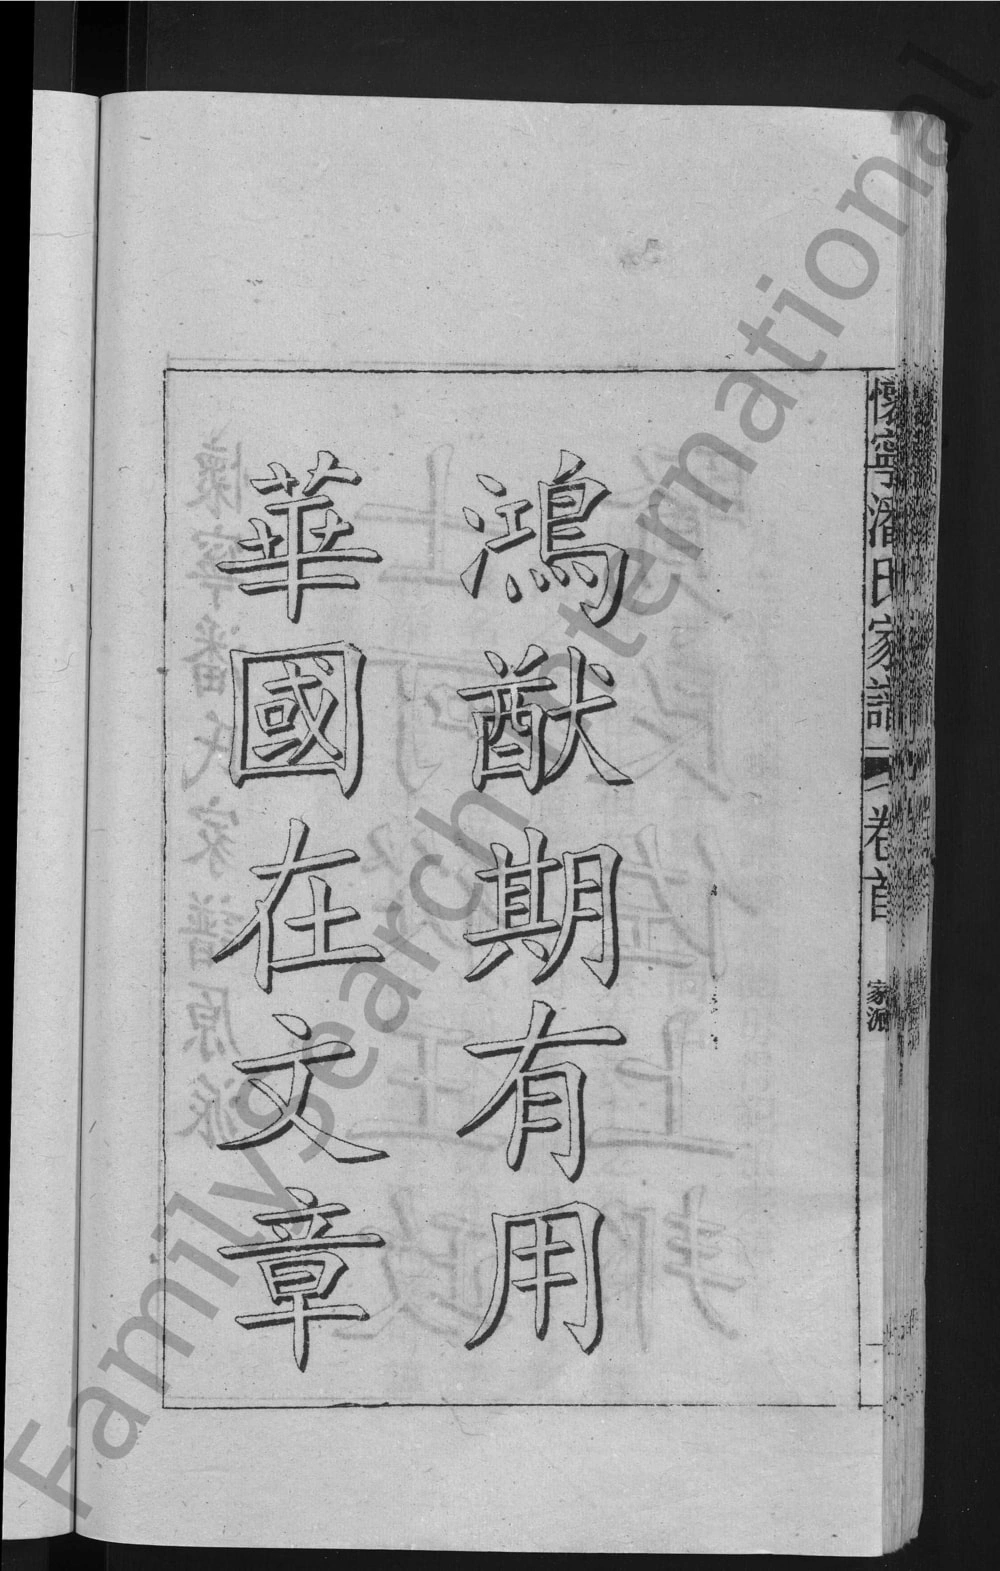 懷寧潘氏家譜
卷首
家派
鴻猷期有用
華國在文章
FamilySearch International